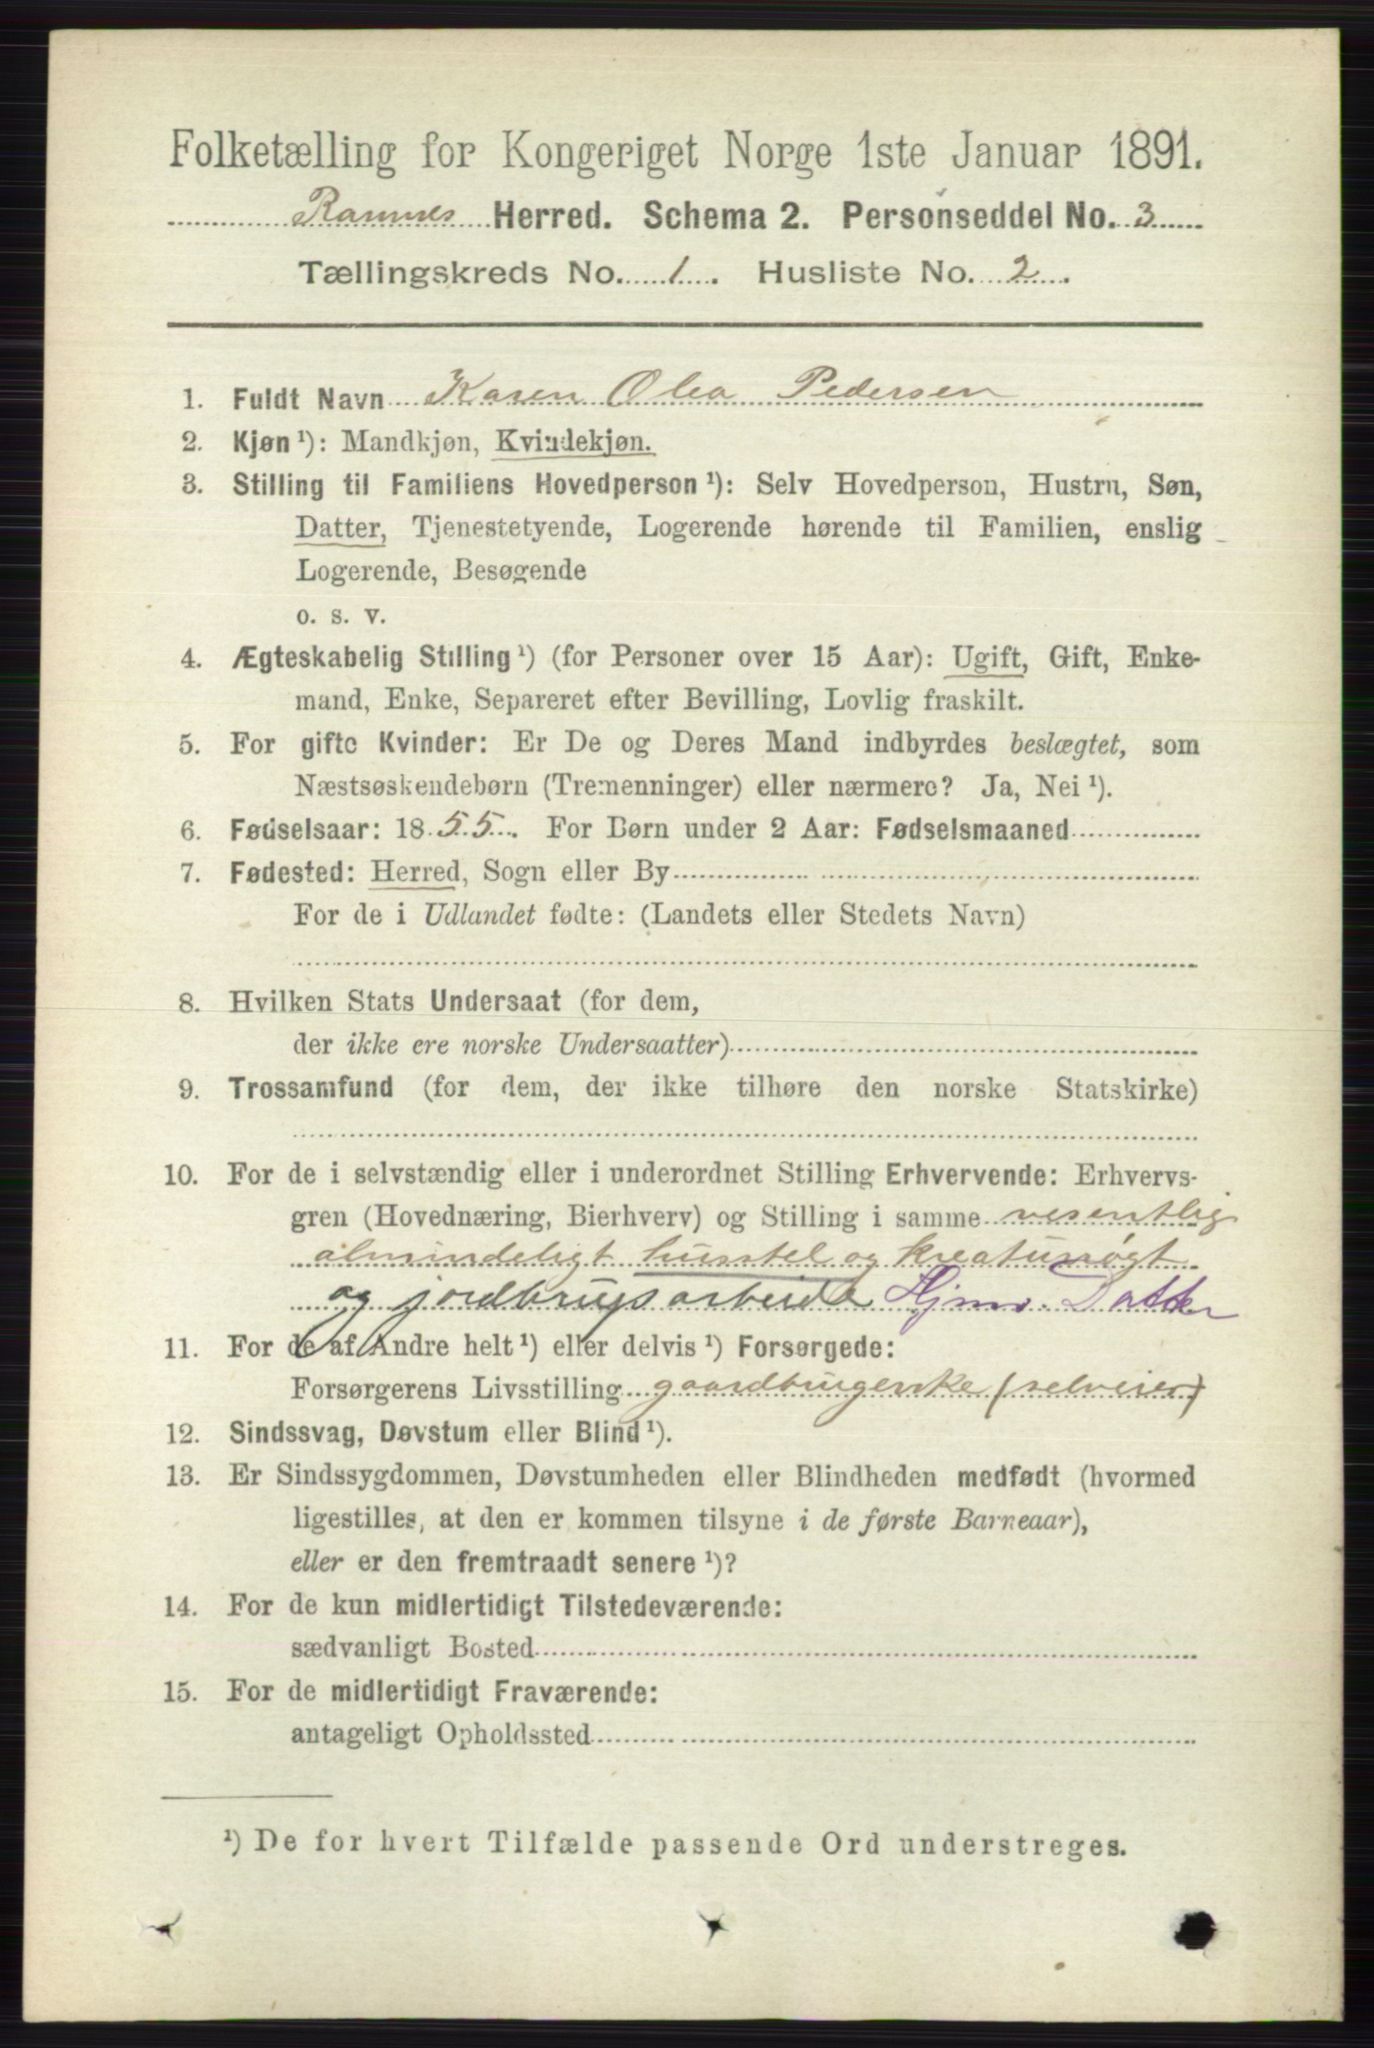 Folketælling for Kongeriget Norge 1ste Januar 1891.
Ramnes Herred. Schema 2. Personseddel No. 3
Tællingskreds No. 1. Husliste No. 2.
1. Fuldt Navn Karen Olea Pedersen
2. Kjøn¹): Mandkjøn, Kvindekjøn.
3. Stilling til Familiens Hovedperson¹): Selv Hovedperson, Hustru, Søn,
Datter, Tjenestetyende, Logerende hørende til Familien, enslig
Logerende, Besøgende
o. s. v.
4. Ægteskabelig Stilling¹) (for Personer over 15 Aar): Ugift, Gift, Enke-
mand, Enke, Separeret efter Bevilling, Lovlig fraskilt.
5. For gifte Kvinder: Er De og Deres Mand indbyrdes beslægtet, som
Næstsøskendebørn (Tremenninger) eller nærmere? Ja, Nei¹).
6. Fødselsaar: 1855. For Børn under 2 Aar: Fødselsmaaned
7. Fødested: Herred, Sogn eller By
For de i Udlandet fødte: (Landets eller Stedets Navn)
8. Hvilken Stats Undersaat (for dem,
der ikke ere norske Undersaatter)
9. Trossamfund (for dem, der ikke tilhøre den norske Statskirke)
10. For de i selvstændig eller i underordnet Stilling Erhvervende: Erhvervs-
gren (Hovednæring, Bierhverv) og Stilling i samme vesentlig
almindeligt husstel og kreaturrøgt
og jordbrugsarbeide Hjmv. Datter
11. For de af Andre helt¹) eller delvis¹) Forsørgede:
Forsørgerens Livsstilling gaardbrugerske (selveier)
12. Sindssvag, Døvstum eller Blind¹).
13. Er Sindssygdommen, Døvstumheden eller Blindheden medfødt (hvormed
ligestilles, at den er kommen tilsyne i de første Barneaar),
eller er den fremtraadt senere¹)?
14. For de kun midlertidigt Tilstedeværende:
sædvanligt Bosted
15. For de midlertidigt Fraværende:
antageligt Opholdssted
¹) De for hvert Tilfælde passende Ord understreges.